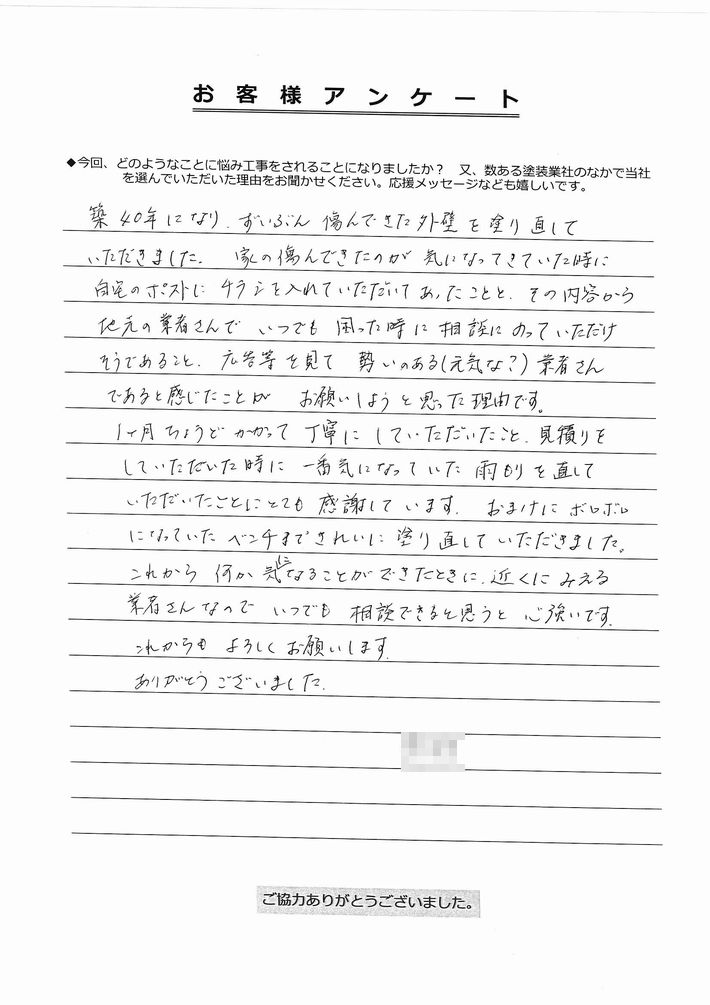 お客様アンケート
◆今回、どのようなことに悩み工事をされることになりましたか？　又、数ある塗装業社のなかで当社
を選んでいただいた理由をお聞かせください。応援メッセージなども嬉しいです。
築40年になり、ずいぶん 傷んできた外壁を塗り直して
いただきました。 家の傷んできたのが 気になってきていた時に
自宅のポストに チラシを入れていただいてあったことと、その内容から
地元の業者さんで いつでも 困った時に 相談にのっていただけ
そうであること、広告等を見て 勢いのある(元気な?)業者さん
であると感じたことが お願いしようと思った理由です。
1ヶ月ちょうど かかって 丁寧に していただいたこと、見積りを
していただいた時に 一番気になっていた 雨もりを直して
いただいたことにとても 感謝しています。 おまけに ボロボロ
になっていた ベンチまできれいに 塗り直して いただきました。
これから 何か 気になることができたときに、近くに みえる
業者さんなので いつでも 相談できると思うと 心強いです。
これからも よろしく お願いします。
ありがとうございました。
ご協力ありがとうございました。